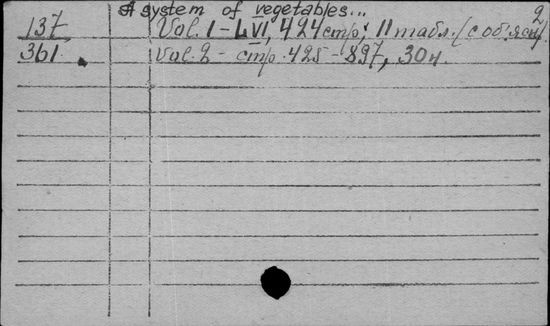 A system of vegetables... 2
137 Vol. 1 - LVI, 424 стр; 11 табл. (с объясн).
361 Vol. 2 - стр. 425-897, 30 н.